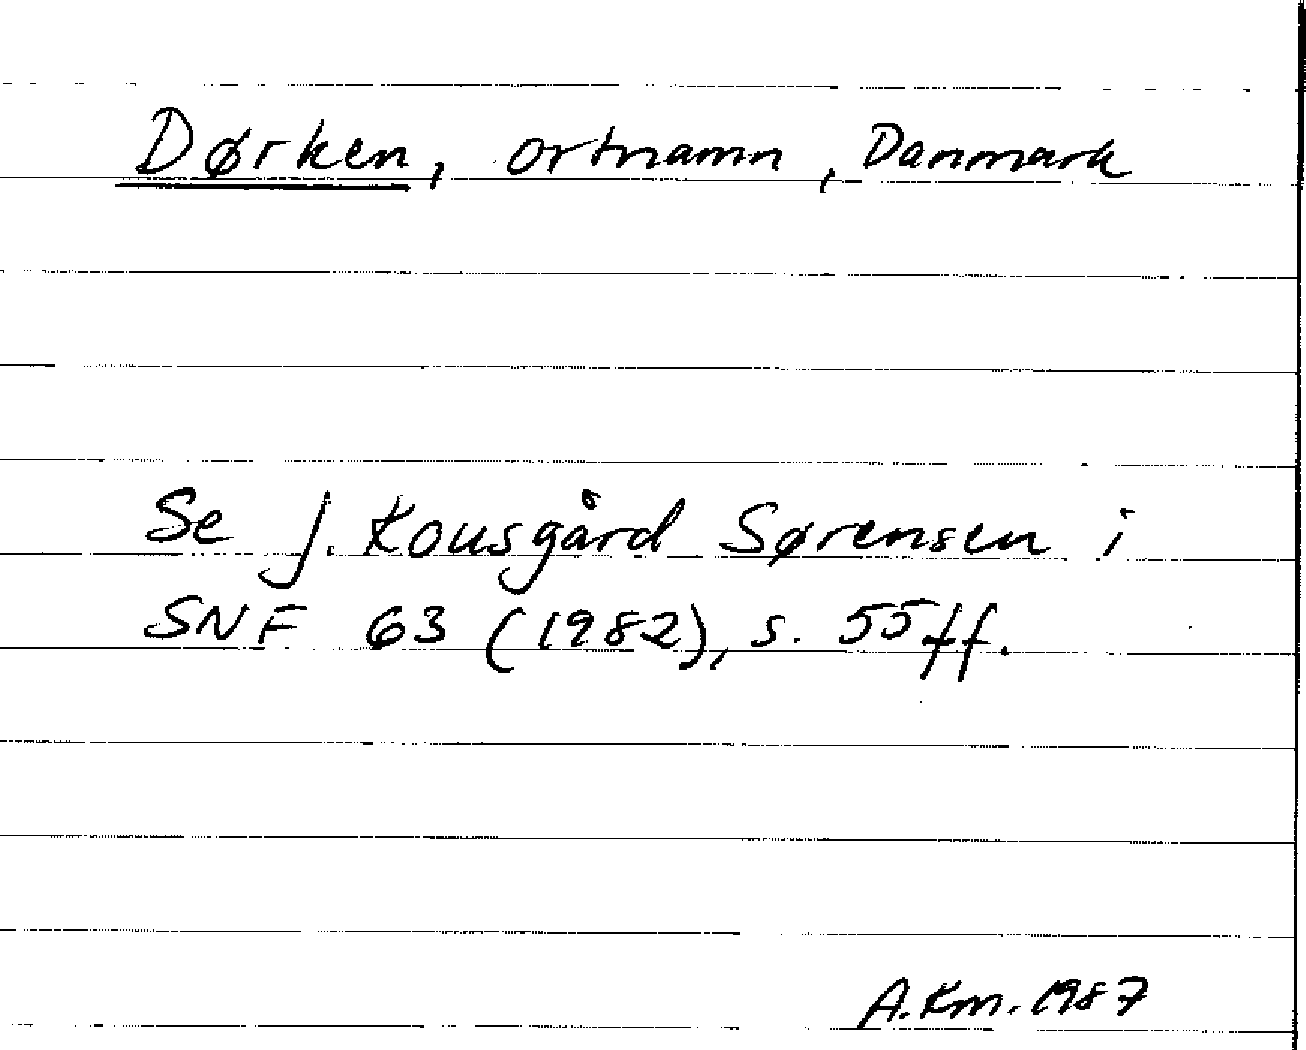 Dørken, ortnamn, Danmark
Se J. Kousgård Sørensen i
SNF 63 (1982), s. 55ff.
A.Km. 1987